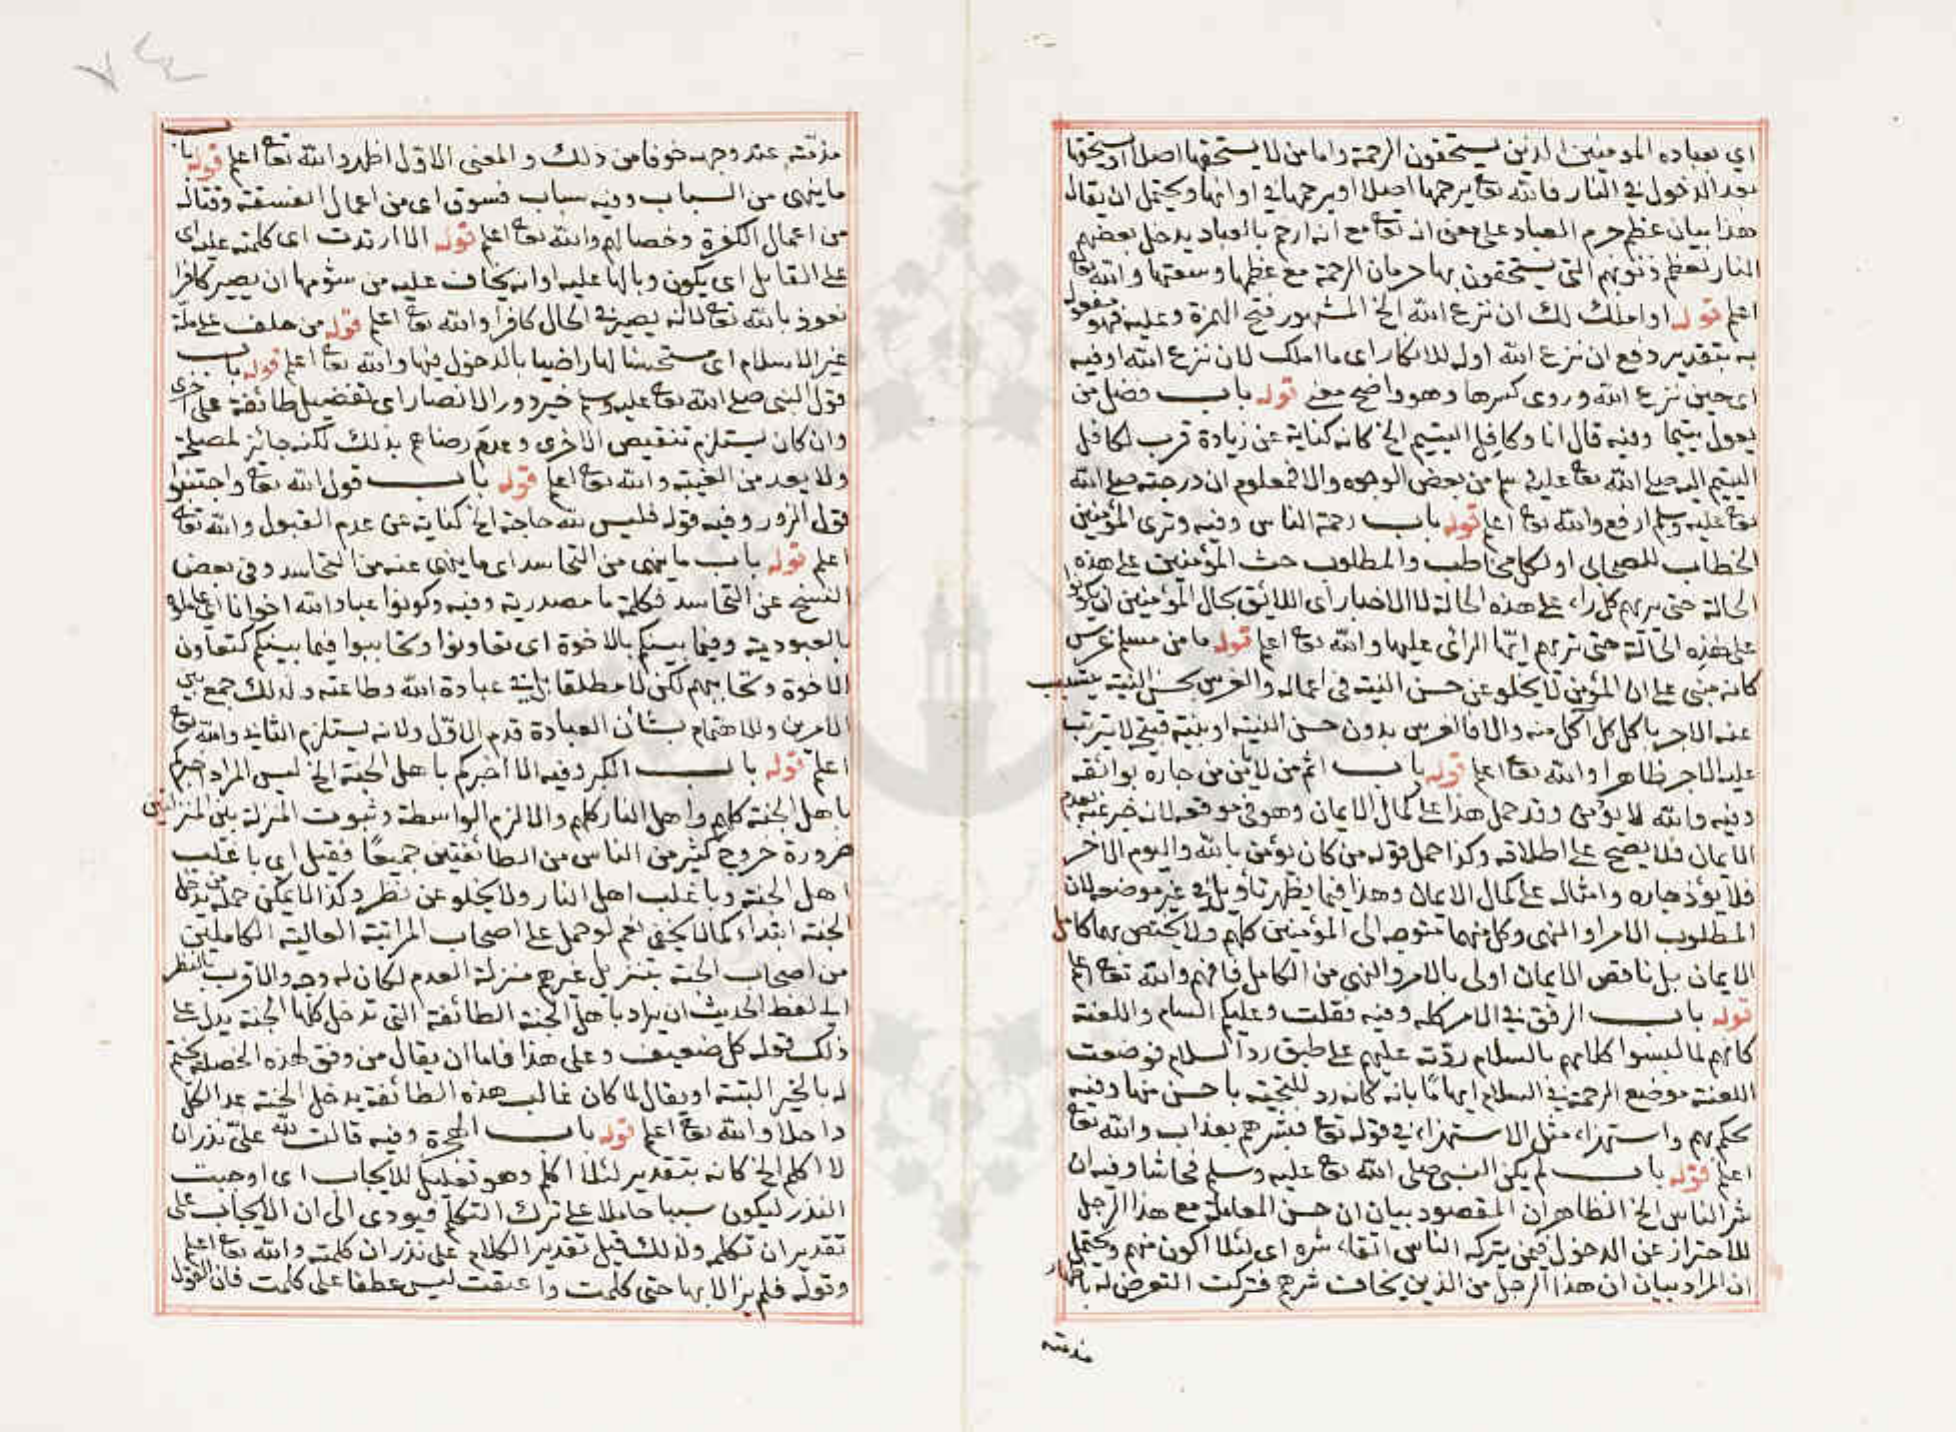 اي بعباده المومنين الذين يستحقون الرحمة واما من لا يستحقها اصلا او يستحقها
بعد الدخول في النار فالله تعا يرحمها اصلا او يرحمها في اوانها ويحتمل ان يقال
هذا بيان عظم جرم العباد على معنى انه تعا مع انه ارحم بالعباد يدخل بعضهم
النار لعظم ذنوبهم التي يستحقون بها حرمان الرحمة مع عظمها وسعتها والله تعا
اعلم قوله او املك لك ان نزع الله الخ المشهور فتح الهمزة وعليه فهو مفعول
به بتقدير دفع ان نزع الله اوله للانكار اي ما املك لان نزع الله او فيه
اي حين نزع الله وروى كسرها وهو واضح معنى قوله باب فضل من
يعول يتيما وفيه قال انا وكافل اليتيم الخ كانه كناية عن زيادة قرب لكافل
اليتيم اليه صلى الله تعا عليه وسلم من بعض الوجوه والا فمعلوم ان درجته صلى الله
تعا عليه وسلم ارفع والله تعا اعلم قوله باب رحمة الناس وفيه وترى المؤمنين
الخطاب للصحابى او لكل مخاطب والمطلوب حث المؤمنين على هذه
الحالة حتى يريهم كل راء على هذه الحالة لا الاخبار اى اللائق بحال المؤمنين ان يكونوا
على هذه الحالة حتى تريهم ايها الرائى عليها والله تعا اعلم قوله ما من مسلم غرس
كانه مبنى على ان المؤمن لا يخلو عن حسن النية فى اعماله والغرس بحسن النية يتسبب
عنه الاجر باكل كل آكل منه والا فالغرس بدون حسن النية او بنية قبيح لا يترتب
عليه الاجر ظاهرا والله تعا اعلم قوله باب اثم من لا يامن جاره بوائقه
وفيه والله لا يؤمن وقد حمل هذا على كمال الايمان وهو فى موقعه لان خبر عنه بعدم
الايمان فلا يصح على اطلاقه وكذا حمل قوله من كان يؤمن بالله واليوم الاخر
فلا يؤذ جاره وامثاله على كمال الايمان وهذا فيما يظهر تاويل فى غير موضعه لان
المطلوب الامر او النهى وكل منهما متوجه الى المؤمنين كلهم ولا يختص بهما كامل
الايمان بل ناقص الايمان اولى بالامر والنهى من الكامل فافهم والله تعا اعلم
قوله باب الرفق فى الامر كله وفيه فقلت وعليكم السام واللعنة
كانهم لما لبسوا كلامهم بالسلام ردّته عليهم على طبق رد السلام فوضعت
اللعنة موضع الرحمة فى السلام ايهامًا بانه كانه رد للتحية باحسن منها وفيه
تحكم بهم واستهزاء مثل الاستهزاء فى قوله تعا فبشرهم بعذاب والله تعا
اعلم قوله باب لم يكن النبى صلى الله تعا عليه وسلم فحاشا وفيه ان
شر الناس الخ الظاهر ان المقصود بيان ان حسن المعاملة مع هذا الرجل
للاحتراز عن الدخول فيمن يتركه الناس اتقاء شره اى لئلا اكون منهم ويحتمل
ان المراد بيان ان هذا الرجل من الذين يخاف شرهم فتركت التعرض له باظهار
مذمته
مذمته عند وجهه خوفا من ذلك والمعنى الاول اظهر والله تعا اعلم قوله باب
ما ينهى من السباب وفيه سباب فسوق اى من اعمال الفسقة وقتاله
من اعمال الكفرة وخصالهم والله تعا اعلم قوله الا ارتدت اى كلمته عليه اى
على القابل اى يكون وبالها عليه او انه يخاف عليه من شؤمها ان يصير كافرا
نعوذ بالله تعا لا انه يصير فى الحال كافرا والله تعا اعلم قوله من حلف على ملة
غير الاسلام اى مستحسنا لها راضيا بالدخول فيها والله تعا اعلم قوله باب
قول النبى صلى الله تعا عليه وسلم خير دور الانصار اى تفضيل طائفة على اخرى
وان كان يستلزم تنقيص الاخرى وعدم رضاهم بذلك لكنه جائز لمصلحة
ولا يعد من الغيبة والله تعا اعلم قوله باب قول الله تعا واجتنبوا
قول الزور وفيه قوله فليس لله حاجة الخ كناية عن عدم القبول والله تعا
اعلم قوله باب ما ينهى من التحاسد اى ما ينهى عنه من التحاسد وفى بعض
النسخ عن التحاسد فكلمة ما مصدرية وفيه وكونوا عباد الله اخوانا اى عاملوه
بالعبودية وفيما بينكم بالاخوة اى تعاونوا وتحاببوا فيما بينكم كتعاون
الاخوة وتحاببهم لكن لا مطلقا بل فى عبادة الله وطاعته ولذلك جمع بين
الامرين وللاهتمام بشأن العبادة قدم الاول ولانه يستلزم الثانى والله تعا
اعلم قوله باب الكبر وفيه الا اخبركم باهل الجنة الخ ليس المراد اخبركم
باهل الجنة كلهم واهل النار كلهم والا لزم الواسطة وثبوت المنزلة بين المنزلتين
ضرورة خروج كثير من الناس من الطائفتين جميعًا فقيل اى باغلب
اهل الجنة وباغلب اهل النار ولا يخلو عن نظر وكذا لا يمكن حمله من يدخل
الجنة ابتداء كما لا يخفى نعم لو حمل على اصحاب المراتب العالية الكاملين
من اصحاب الجنة بتنزيل غيرهم منزلة العدم لكان له وجه والاقرب بالنظر
الى لفظ الحديث ان يراد باهل الجنة الطائفة التى تدخل كلها الجنة يدل على
ذلك قوله كل ضعيف وعلى هذا فاما ان يقال من وفق لهذه الخصلة يختم
له بالخير البتة او يقال لما كان غالب هذه الطائفة يدخل الجنة عد الكل
داخلا والله تعا اعلم قوله باب الهجرة وفيه قالت لله علىّ نذر ان
لا اكلم الخ كانه بتقدير لئلا اكلم وهو تعليل للايجاب اى اوجبت
النذر ليكون سببا حاملا على ترك التكلم فيودى الى ان الايجاب على
تقدير ان تكلمه ولذلك قيل تقدير الكلام على نذر ان كلمته والله تعا اعلم
وقوله فلم يزالا بها حتى كلمت واعتقت ليس عطفا على كلمت فان القول